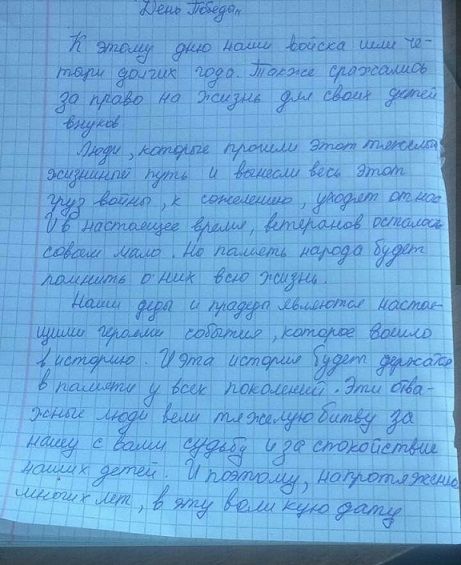 День Победы
К этому дню наши войска шли че-
тыри долгих года. Также сражались
за право на жизнь для своих детей
внуков
Люди, которые прошли этот тяжелый
жизниный путь и вынесли весь этот
груз войны, к сожелению, уходят от нас
И в настоещее время, ветеранов осталось
совсем мало. Но память народа будет
помнить о них всю жизнь.
Наши деды и прадеды являются настоя-
щими героями события, которое вошло
в историю. И эта история будет держатся
в памяти у всех поколений. Эти отва-
жные люди вели тяжелую битву за
нашу с вами судьбу и за спокойствие
наших детей. И поэтому, на протяжение
многих лет, в эту великую дату